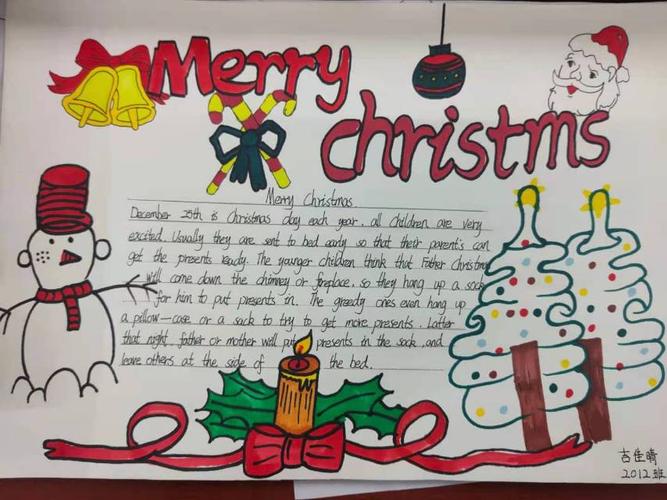 Merry
christms
Merry Christmas
December 25th is Christmas day each year. all children are very
excited. Usually they are sent to bed early so that their parent's can
get the presents ready. The younger children think that Father Christmas
will come down the chimney or fireplace. so they hang up a sock
for him to put presents in. The greedy ones even hang up
a pillow-case or a sack to try to get more presents. Latter
that night. father or mother will put presents in the sock .and
leave others at the side of the bed.
吉佳晴
2012班